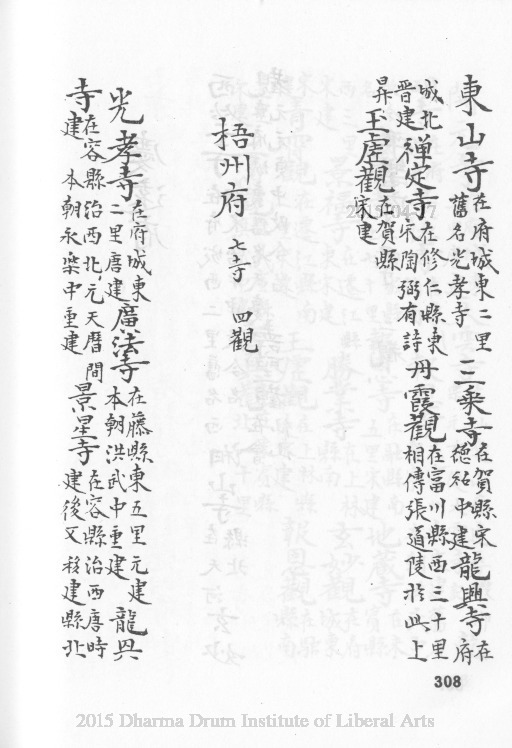 東山寺在府城東二里舊名光孝寺三乘寺在賀縣宋德祐中建龍興寺在府
城北晉建禪定寺在修仁縣東宋陶弼有詩丹霞觀在富川縣西三十里相傳張道陵於此上
昇玉虛觀在賀縣宋建
梧州府 七寺 四觀
光孝寺在府城東二里唐建廣法寺在藤縣東五里元建本朝洪武中重建龍興
寺在容縣治西北元天曆間建本朝永樂中重建景星寺在容縣治西唐時建後又移建縣北
308
2015 Dharma Drum Institute of Liberal Arts